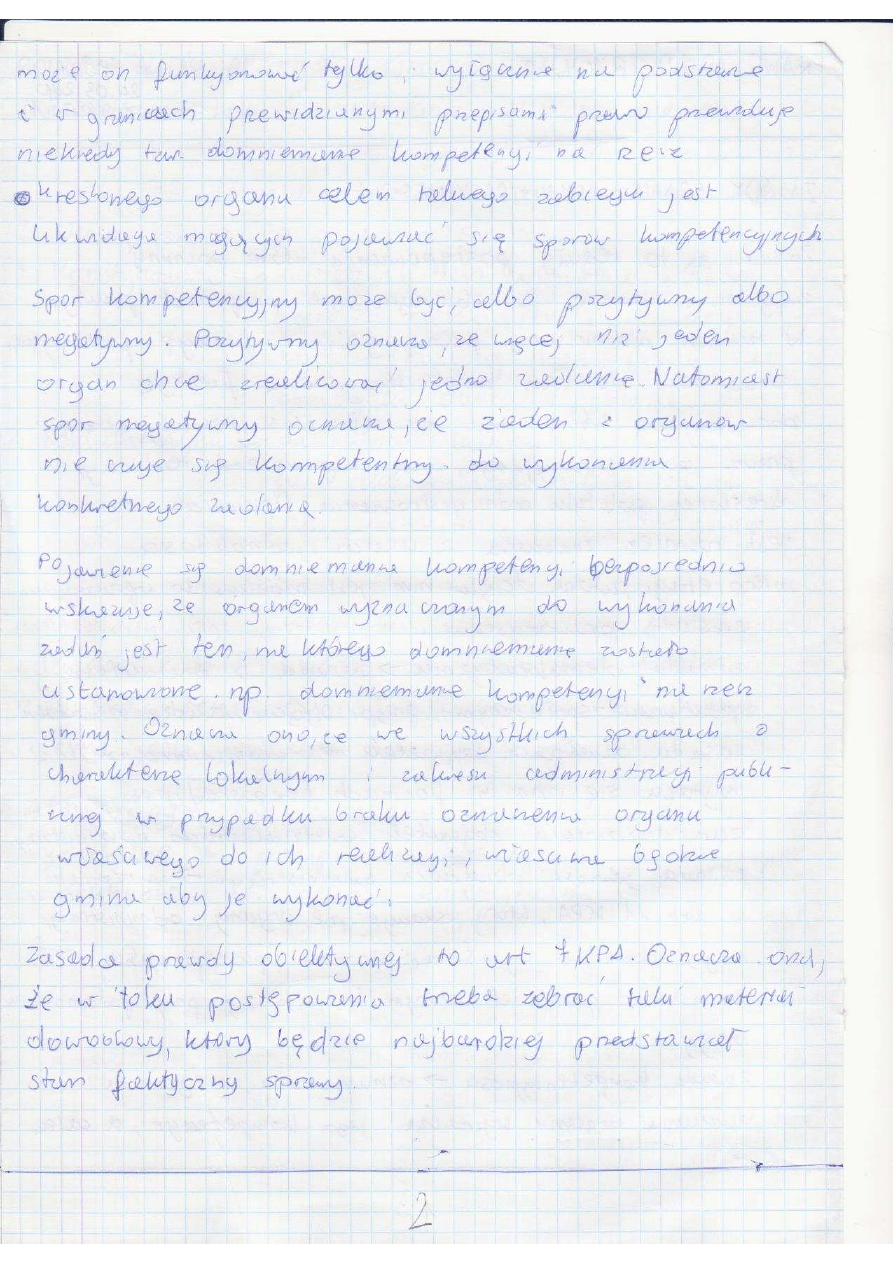 może on funkcjonować tylko i wyłącznie na podstawie
i w granicach przewidzianymi przepisami prawo przewiduje
niekiedy tzw. domniemanie kompetencji na rzecz
określonego organu celem takiego zabiegu jest
likwidacja mogących pojawiać się sporów kompetencyjnych
Spór kompetencyjny może być, albo pozytywny albo
negatywny. Pozytywny oznacza, że więcej niż jeden
organ chce zrealizować jedno zadanie. Natomiast
spór negatywny oznacza, że żaden z organów
nie czuje się kompetentny do wykonania
konkretnego zadania.
Pojawienie się domniemania kompetencji bezpośrednio
wskazuje, że organem wyznaczonym do wykonania
zadań jest ten, na którego domniemanie zostało
ustanowione. np. domniemanie kompetencji na rzecz
gminy. Oznacza ono, że we wszystkich sprawach o
charakterze lokalnym i zakresu administracji publi-
cznej w przypadku braku oznaczenia organu
właściwego do ich realizacji, właściwa będzie
gmina aby je wykonać.
Zasada prawdy obiektywnej to art 7 KPA. Oznacza ona,
że w toku postępowania trzeba zebrać taki materiał
dowodowy, który będzie najbardziej przedstawiał
stan faktyczny sprawy.
2